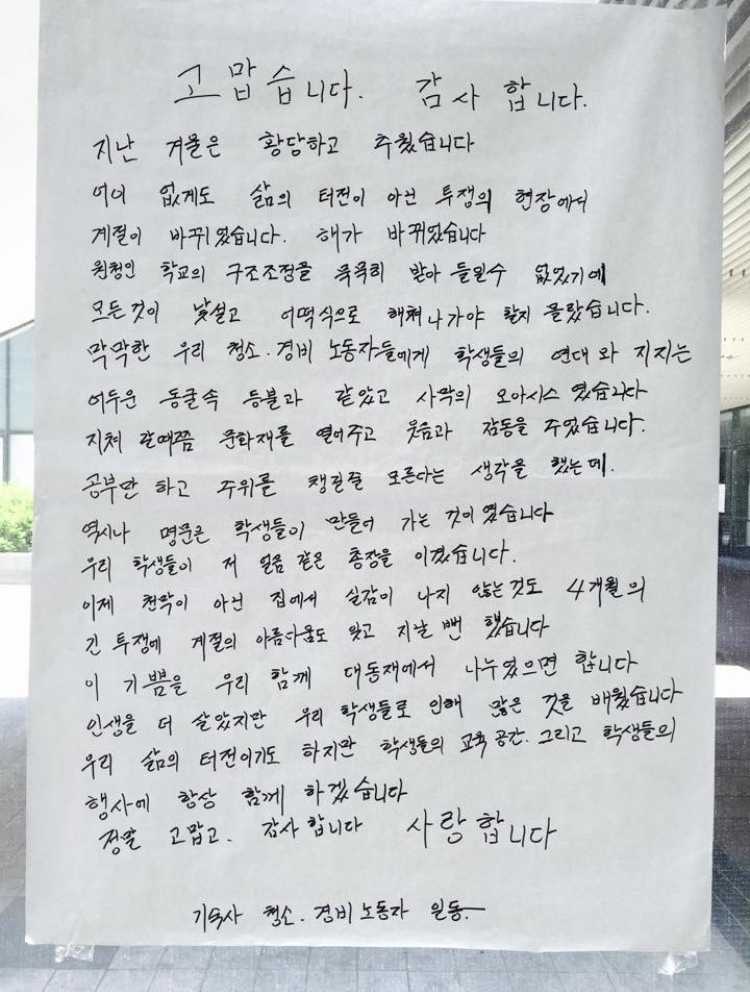 고맙습니다. 감사 합니다.
지난 겨울은 황당하고 추웠습니다
어이 없게도 삶의 터전이 아닌 투쟁의 현장에서
계절이 바뀌었습니다. 해가 바뀌었습니다
원청인 학교의 구조조정을 묵묵히 받아 들일수 없었기에
모든것이 낯설고 어떡식으로 해쳐나가야 할지 몰랐습니다.
막막한 우리 청소·경비 노동자들에게 학생들의 연대와 지지는
어두운 동굴속 등불과 같았고 사막의 오아시스 였습니다
지쳐 갈때쯤 문화재를 열어주고 웃음과 감동을 주었습니다.
공부만 하고 주위를 챙길줄 모른다는 생각을 했는데.
역시나 명문은 학생들이 만들어 가는 것이였습니다
우리 학생들이 저 얼음 같은 총장을 이겼습니다.
이제 천막이 아닌 집에서 실감이 나지 않는것도 4개월의
긴 투쟁에 계절의 아름다움도 잊고 지날 뻔 했습니다
이 기쁨을 우리 함께 대동재에서 나누었으면 합니다
인생을 더 살았지만 우리 학생들로 인해 많은 것을 배웠습니다
우리 삶의 터전이기도 하지만 학생들의 교육 공간. 그리고 학생들의
행사에 항상 함께 하겠습니다
정말 고맙고. 감사 합니다 사랑 합니다
기숙사 청소·경비 노동자 일동.